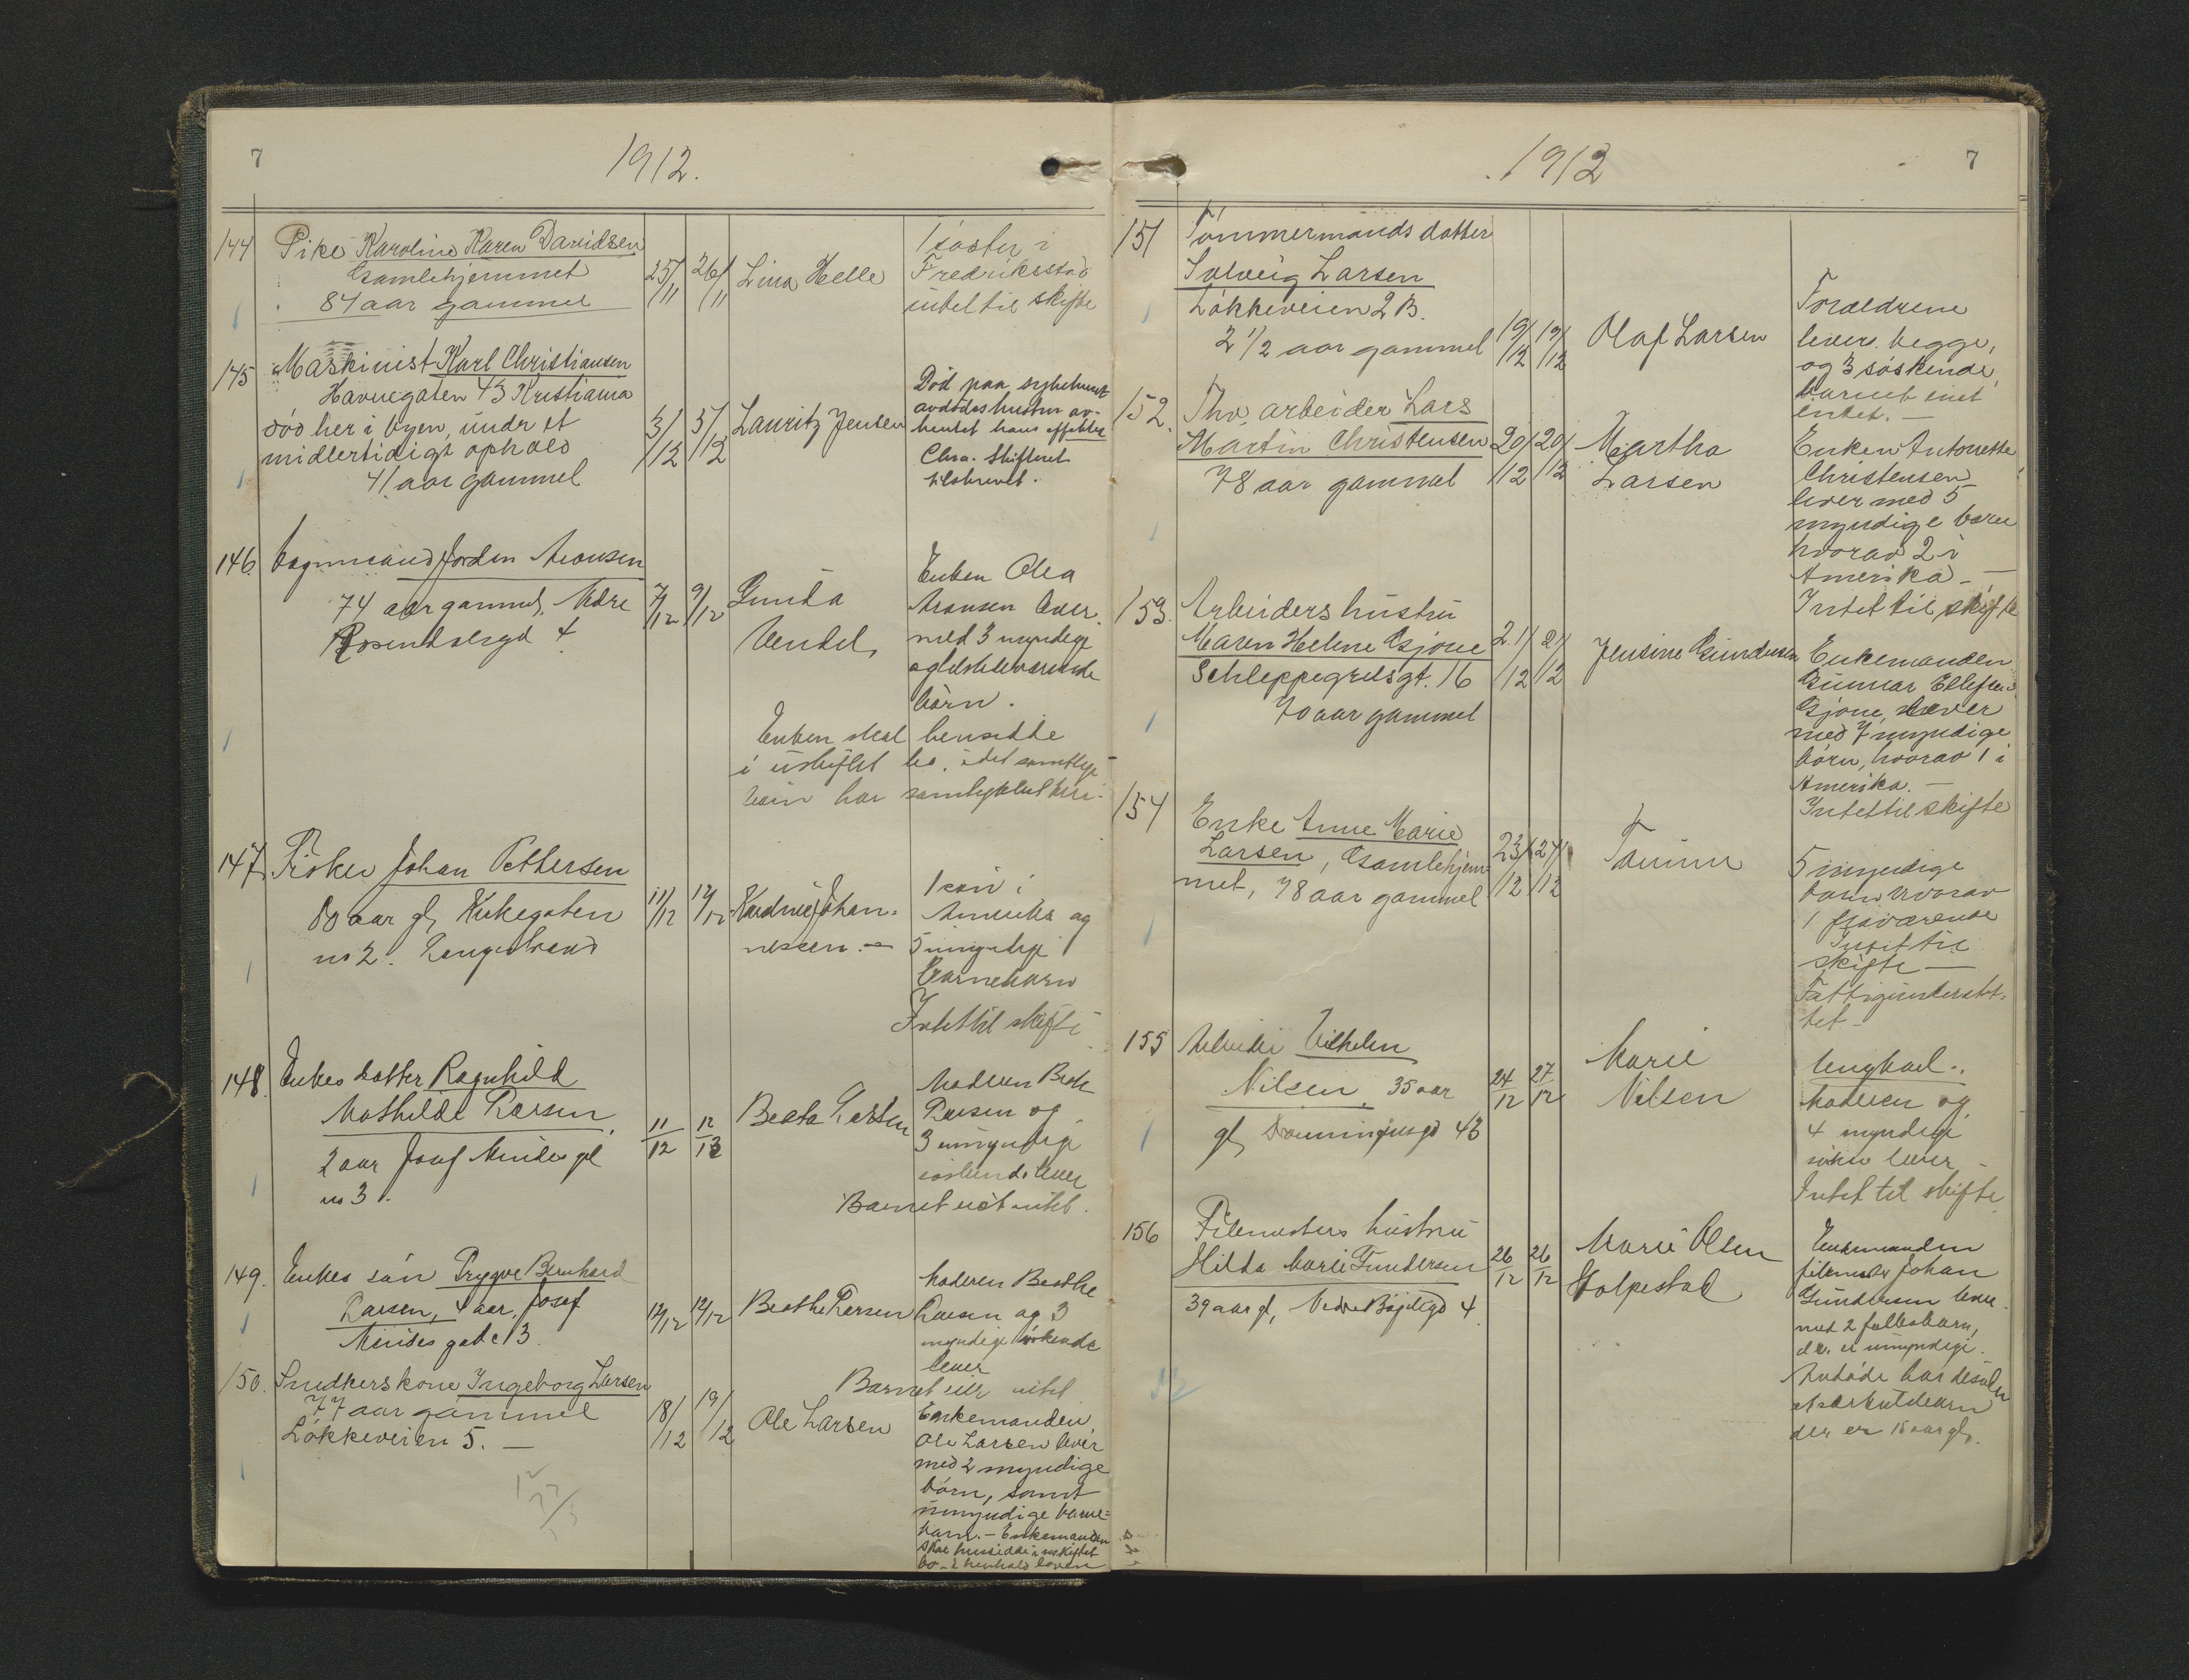 7
1912.
144
Pike Karoline Karen Davidsen
Gamlehjemmet
84 aar gammel
25/11
26/11
Lina Helle
1 søster i
Fredriksstad
intet til skifte
145
Maskinist Karl Christiansen
Havnegaten 43 Kristiania
død her i byen under et
midlertidigt ophold
41 aar gammel
3/12
5/12
Lauritz Jensen
Død paa sykehuset
avdødes hustru av-
hentet hans effekter
Chra. Skifteret
tilskrevet.
146.
Vognmand Jordan Aronsen
74 aar gammel, Nedre
Rosendalsgd 4
7/12
9/12
Gunda
Vendel,
Enken Olea
Aronsen lever
med 3 myndige
og tilstedeværende
børn.
Enken skal hensidde
i uskiftet bo, idet samtlige
børn har samtykket heri.
147.
Fisker Johan Pettersen
80 aar gl, Kirkegaten
no 2. Langestrand
11/12
12/12
Johan-
nessen.
1 søn i
Amerika og
5 myndige
Barnebarn
Intet til skifte
148.
Enkes datter Ragnhild
Mathilde Larsen,
2 aar Josef Mindes gd
no 3.
11/12
12/12
Beata Larsen
Moderen Beate
Larsen og
3 umyndige
søskende lever
Barnet eiet intet.
149.
Enkes søn Trygve Bernhard
Larsen, 4 aar, Josef
Mindes gade 13.
12/12
12/12
Beathe Larsen
Moderen Beathe
Larsen og 3
myndige søskende
lever
Barnet eier intet
150.
Snedkers kone Ingeborg Larsen
77 aar gammel
Løkkeveien 5. —
18/12
19/12
Ole Larsen
Enkemanden
Ole Larsen lever
med 2 myndige
børn, samt
umyndige barne-
barn. — Enkemanden
skal hensidde i uskiftet
bo — i henhold loven
1912
7
151
Tømmermands datter
Solveig Larsen
Løkkeveien 2 B.
2 1/2 aar gammel
19/12
19/12
Olaf Larsen
Foraeldrene
lever begge,
og 3 søskende,
barnet eiet
intet. —
152.
Fhv. arbeider Lars
Martin Christensen
78 aar gammel
20/12
20/12
Martha
Larsen
Enken Antonette
Christensen
lever med 5
myndige børn
hvorav 2 i
Amerika —
Intet til skifte
153.
Arbeiders hustru
Maren Helene Gjone
Schleppegrelsgt. 16
70 aar gammel
21/12
21/12
Jensine Gundersen
Enkemanden
Gunnar Ellefsen
Gjone lever
med 7 myndige
børn, hvorav 1 i
Amerika. —
Intet til skifte
154
Enke Anne Marie
Larsen, Gamlehjem-
met, 78 aar gammel
23/12
27/12
5 myndige
barn hvorav
1 fraværende
Intet til
skifte —
Fattigunderstøt-
tet —
155
Arbeider Vilhelm
Nilsen, 35 aar
gl, Dronningensgd 43
24/12
27/12
Marie
Nilsen
Ungkarl.
Moderen og
4 myndige
søskende lever
Intet til skifte
156
Filemesters hustru
Hilda Marie Gundersen
39 aar gl, Nedre Bøjeligd 4
26/12
26/12
Marie Olsen
Holpestad
Enkemanden
filemester Johan
Gundersen lever
med 2 fællesbarn,
der er umyndige.
Avdøde har desuden
et særkuldbarn
der er 15 aar gl.